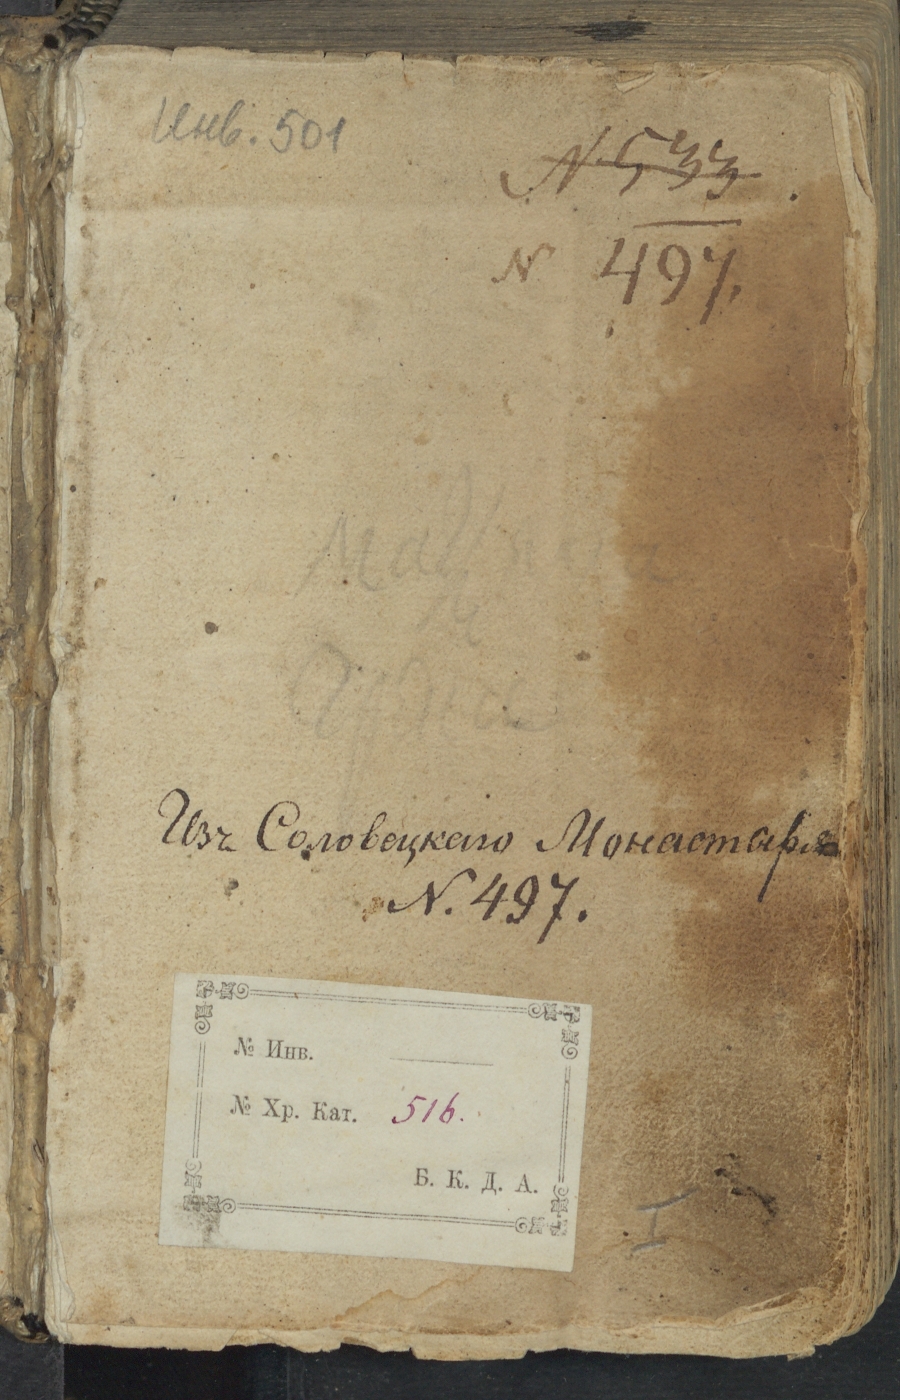 Инв. 501
N 533
N 497.
Изъ Соловецкаго Монастыря
N. 497.
№ Инв.
№ Хр. Кат. 516.
Б. К. Д. А.
I